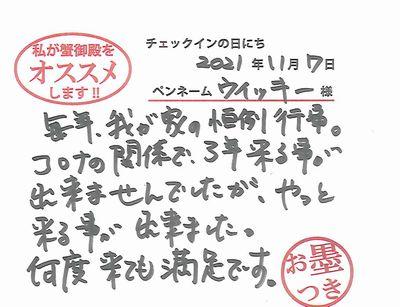 私が蟹御殿を
オススメ
します!!
チェックインの日にち
2021年11月7日
ペンネーム ウィッキー 様
毎年、我が家の恒例行事。
コロナの関係で、3年来る事が
出来ませんでしたが、やっと
来る事が出来ました。
何度来ても満足です。
お墨
つき